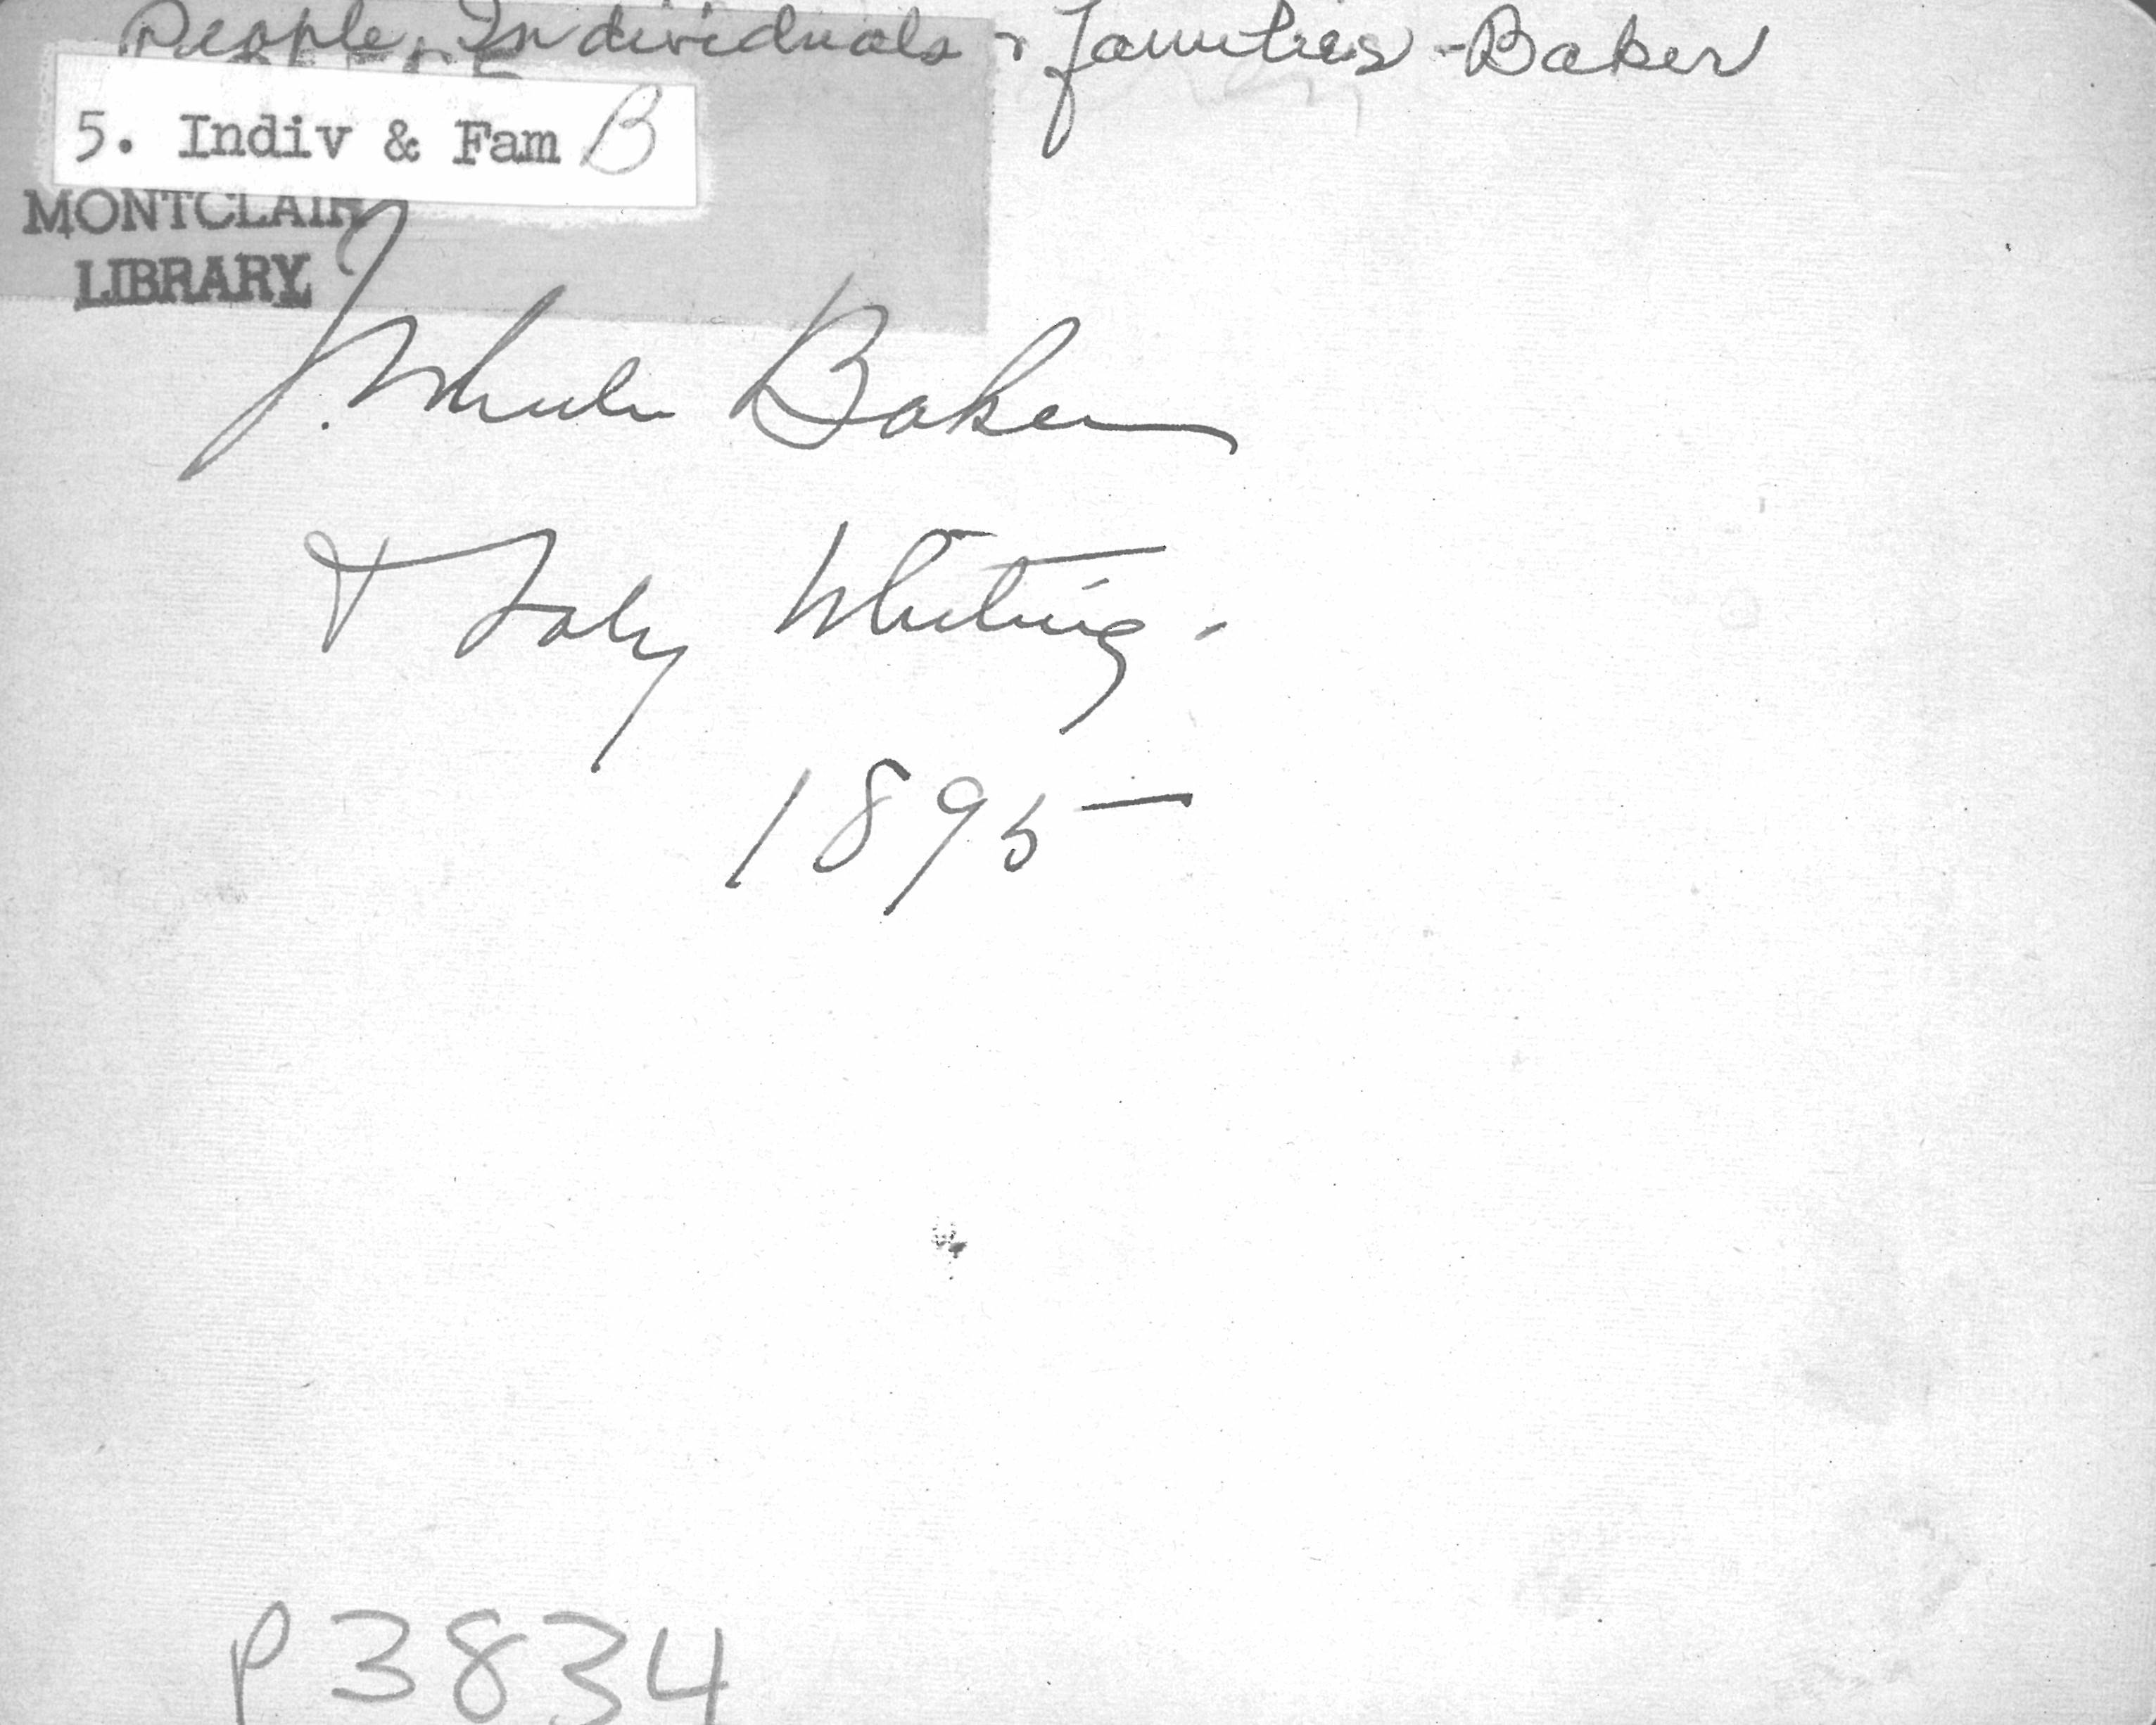 People, Individuals & families - Baker
5. Indiv & Fam B
MONTCLAIR
LIBRARY
J. Wheeler Baker
& Whiting.
1895
P3834